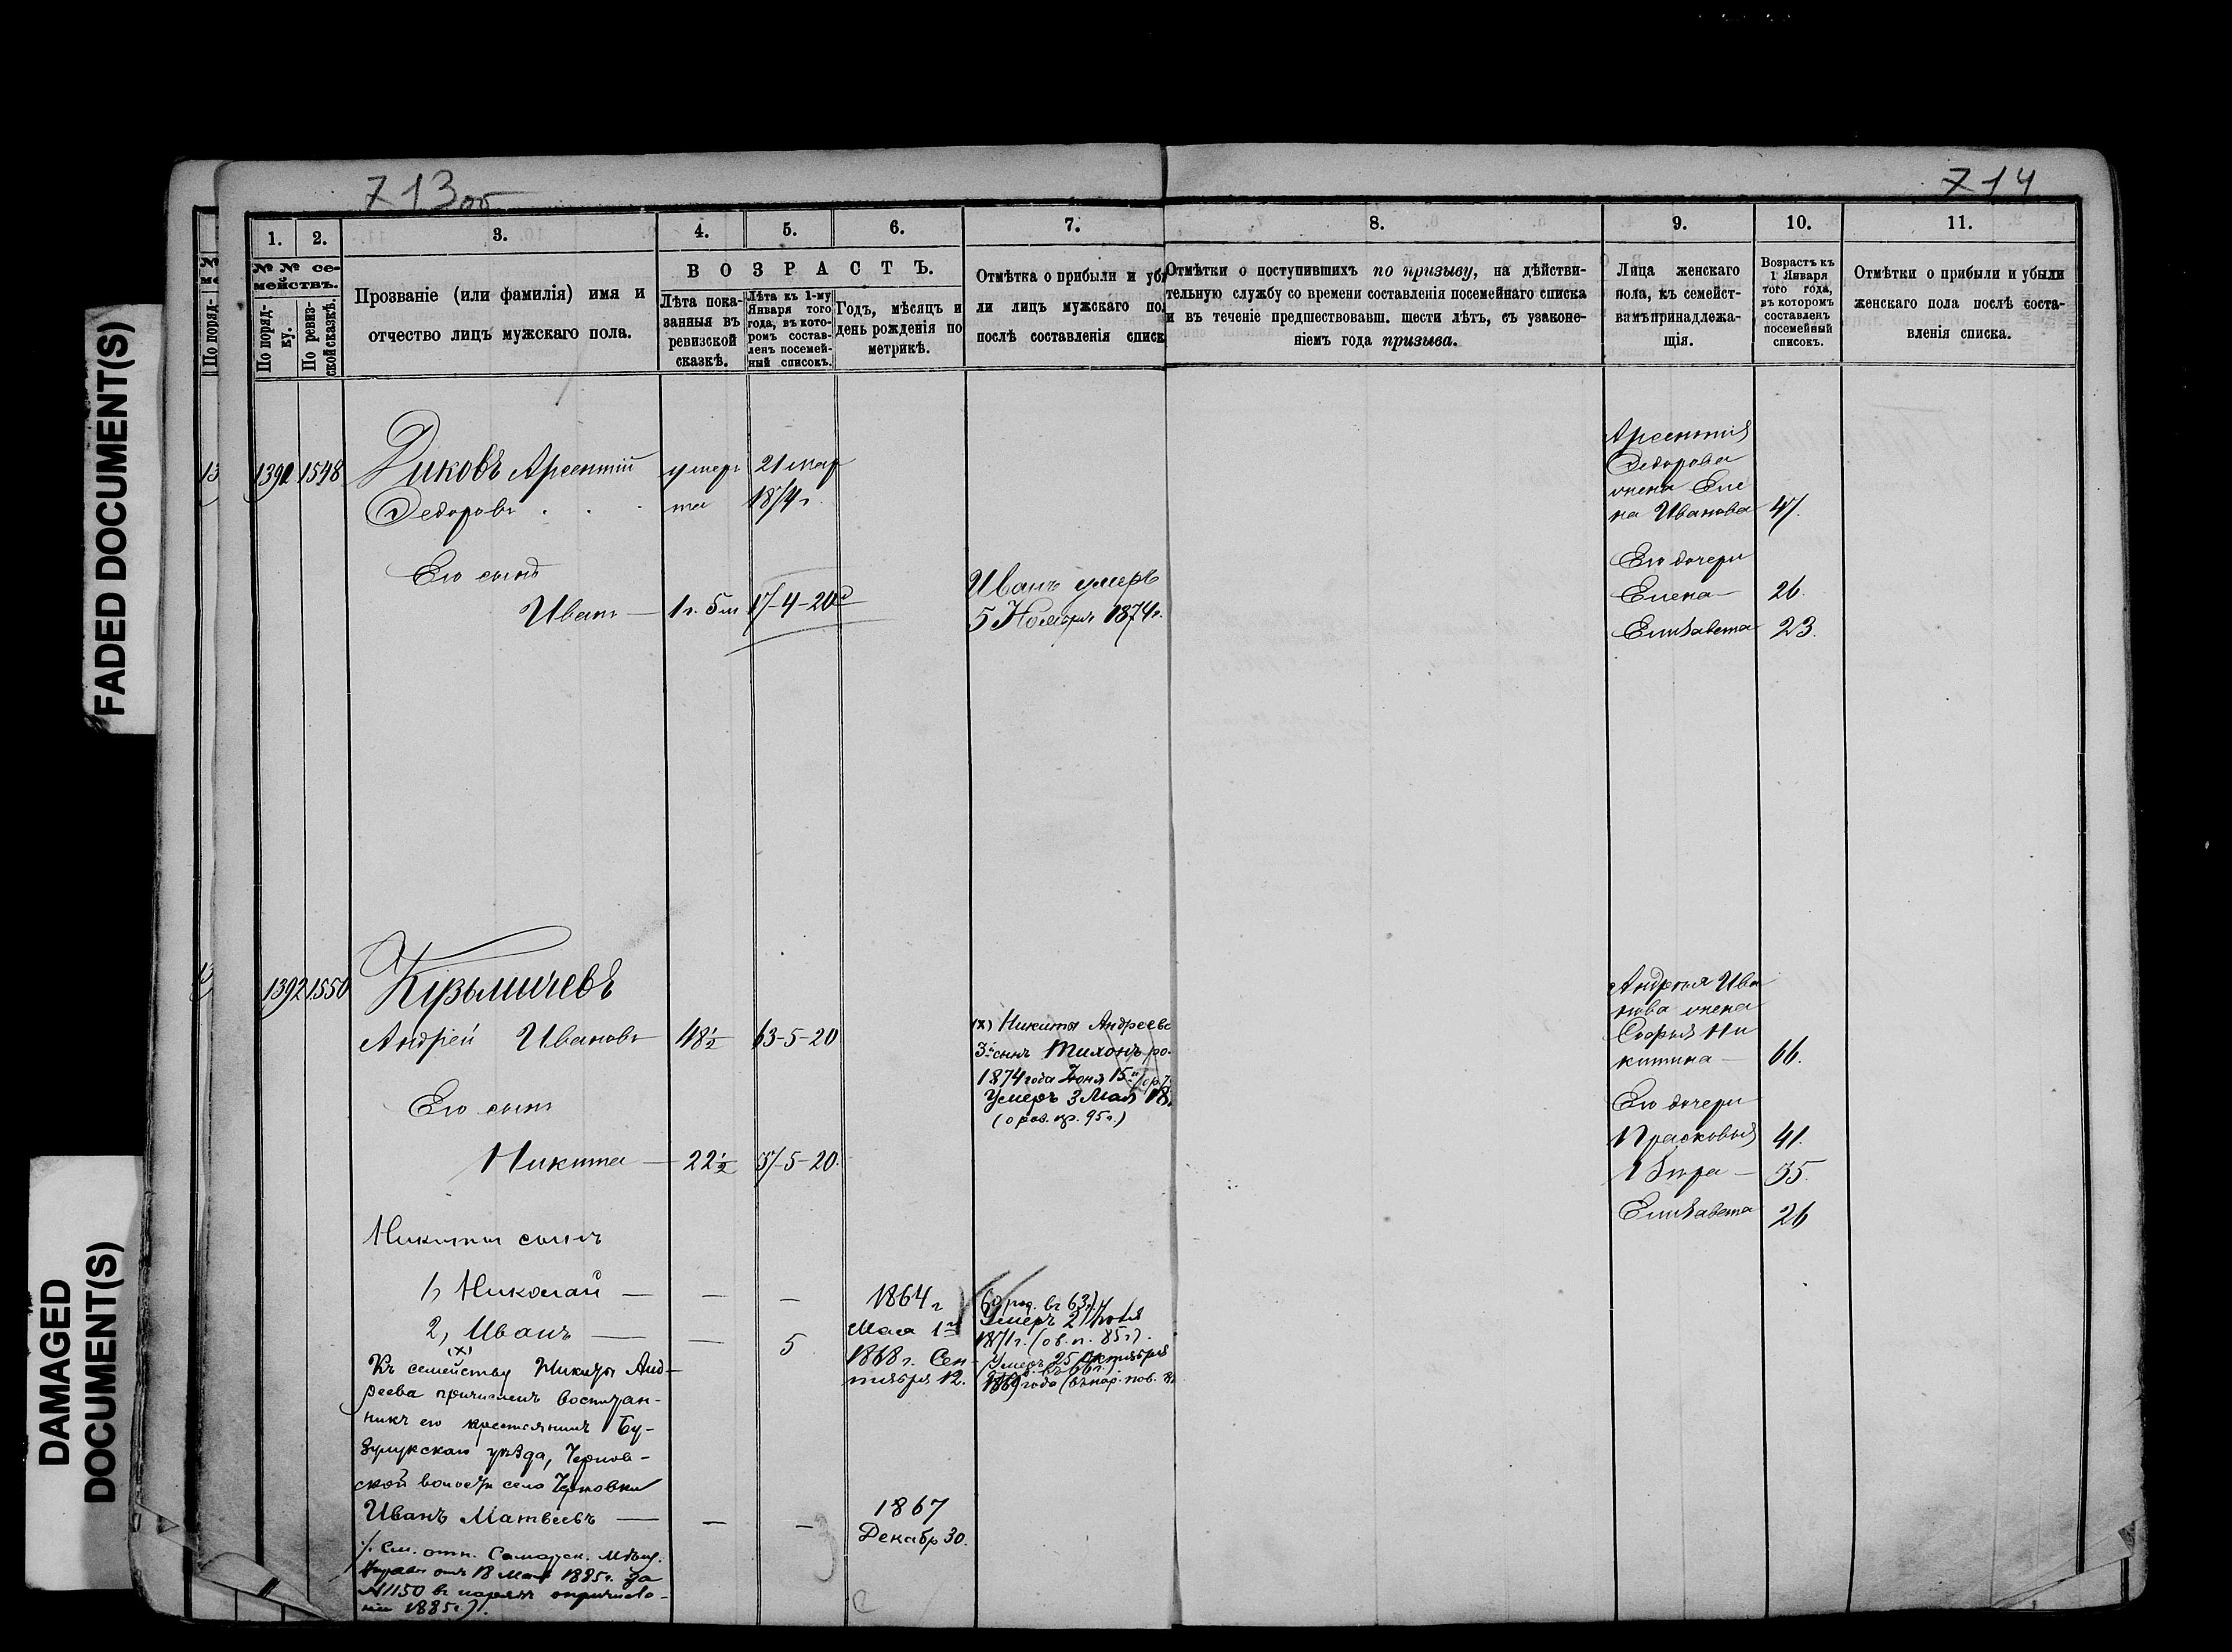 FADED DOCUMENT(S)
DAMAGED
DOCUMENT(S)
713об
714
1.
2.
3.
4.
5.
6.
7.
8.
9.
10.
11.
№ № се-
мействъ.
По поряд-
ку.
По ревиз-
ской сказкѣ.
Прозваніе (или фамилія) имя и
отчество лицъ мужскаго пола.
В О З Р А С Т Ъ.
Лѣта пока-
занныя въ
ревизской
сказкѣ.
Лѣта къ 1-му
Января того
года, въ кото-
ромъ состав-
ленъ посемей-
ный списокъ.
Годъ, мѣсяцъ и
день рожденія по
метрикѣ.
Отмѣтка о прибыли и убы
ли лицъ мужскаго по
послѣ составленія списк
Отмѣтки о поступившихъ по призыву, на дѣйстви-
тельную службу со времени составленія посемейнаго списка
и въ теченіе предшествовавш. шести лѣтъ, съ узаконе-
ніемъ года призыва.
Лица женскаго
пола, къ семейст-
вамъ принадлежа-
щія.
Возрастъ къ
1 Января
того года,
въ которомъ
составленъ
посемейный
списокъ.
Отмѣтки о прибыли и убыли
женскаго пола послѣ соста-
вленія списка.
1548
Диковъ Арсентій
Федоровъ
21 мар
1874 г.
Его сынъ
Иванъ — 1 г. 5 м 17-4-20
Иванъ умеръ
5 Ноября 1874 г.
Арсентія
Федорова
жена Еле
на Иванова 47.
Его дочери
Елена — 26.
Елизавета 23.
1392 1550
Кузьмичевъ
Андрей Ивановъ 48½ 63-5-20
(х) Никиты Андреева
3й сынъ Тихонъ ро-
1874 года Іюня 15
Умеръ 3 Мая 18
Его сынъ
Никита — 22½ 37-5-20.
Андрея Ива
нова жена
Софья Ни
китина — 66.
Его дочери
Прасковья 41.
35.
Елизавета 26
Никиты сынъ
1, Николай — — — 1864 г
Мая 1
2, Иванъ — — 5 1868 г. Сен-
тября 12.
Умеръ 2 Іюля
1871 г.
Умеръ 25 Октября
1869 года
(х)
Къ семейству Никиты Анд-
реева причисленъ воспитан-
никъ его крестьянинъ Бу-
зулукскаго уѣзда, Чернов-
ской волости села Черновки
Иванъ Матвеевъ — — —
1867
Декабр 30.
отъ 18 Мая 1885 г. за
№ 1150
1885 г.).